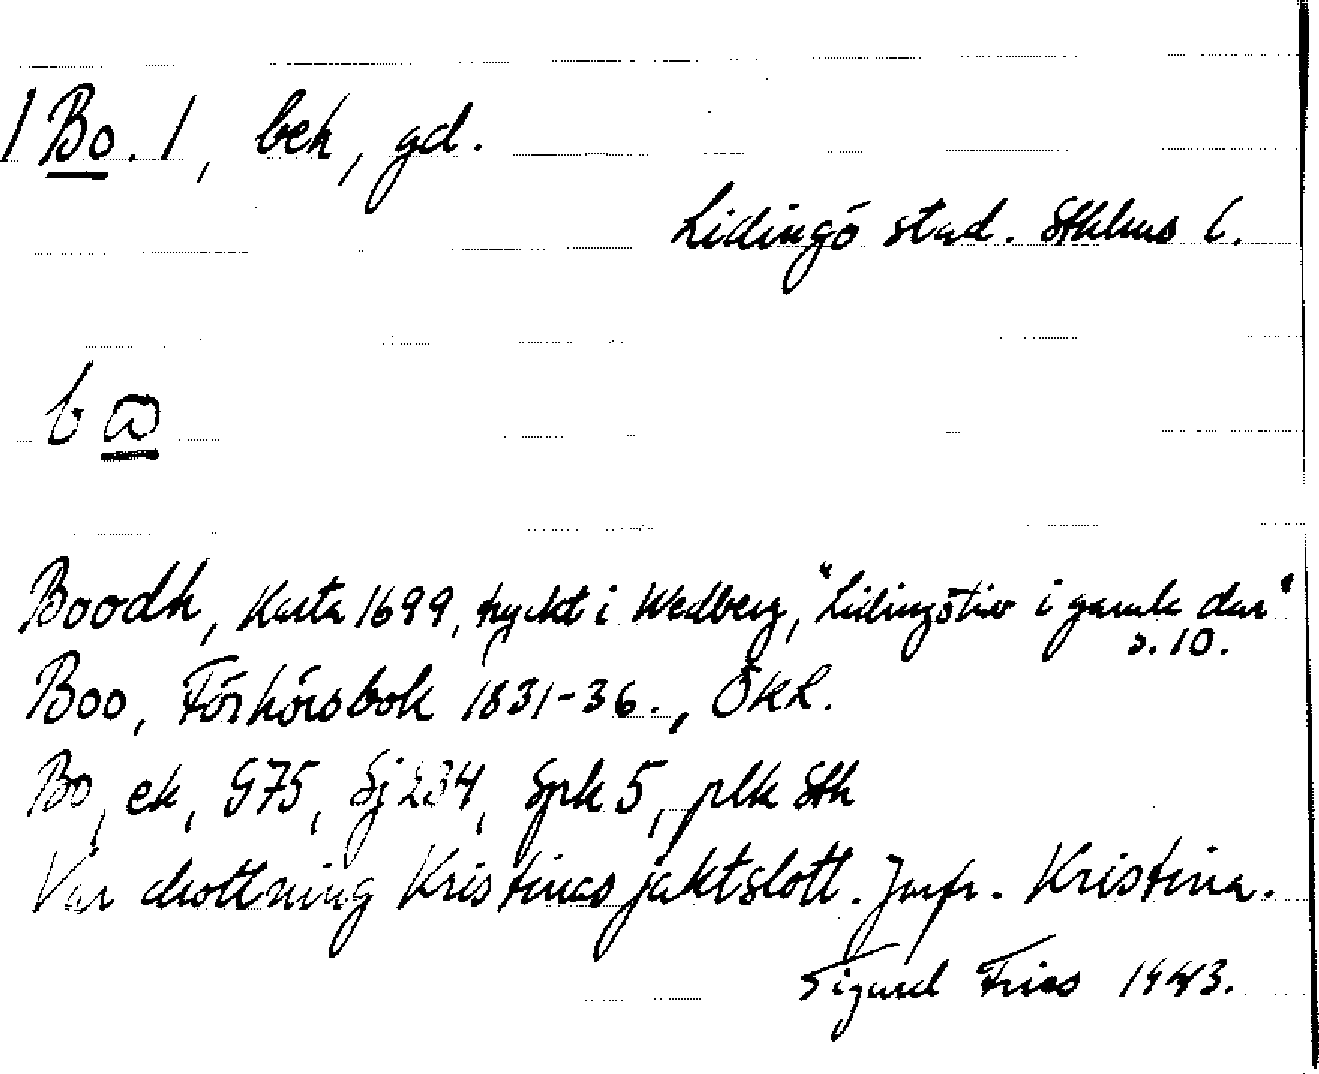 1 Bo. 1, bek, gd.
Lidingö stad. Sthlms l.
b
Boodh, Karta 1699, tryckt i Wedberg, "Lidingöliv i gamla dar"
s. 10.
Boo, Förhörsbok 1831-36., ÖKL.
Bo, ek, G75, Sj 234, Spk 5, plk Sth
Var drottning Kristinas jaktslott. Jmfr. Kristina.
Sigurd Fries 1943.